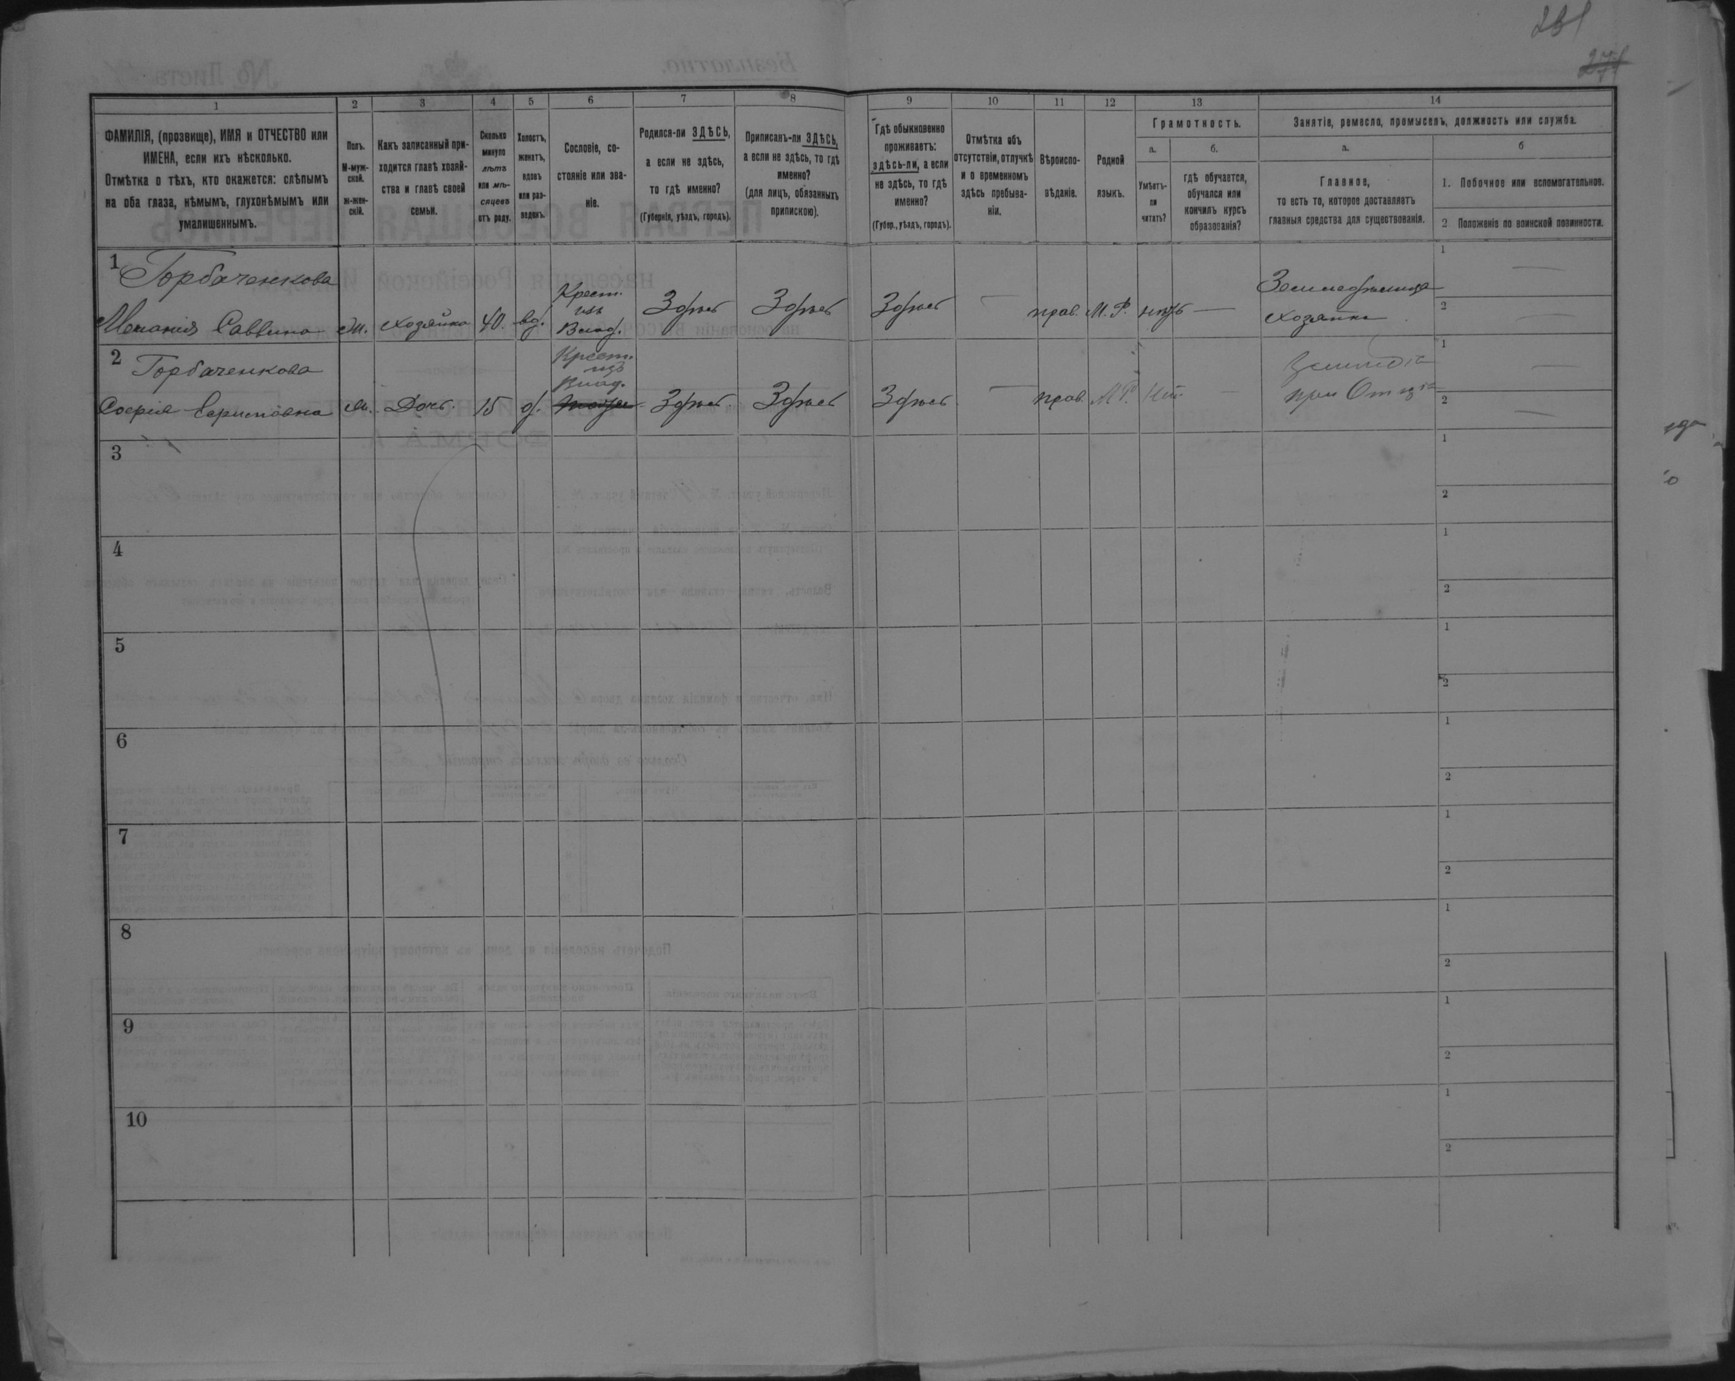 281
1
2
3
4
5
6
7
8
9
10
11
12
13
14
ФАМИЛІЯ, (прозвище), ИМЯ и ОТЧЕСТВО или
ИМЕНА, если ихъ нѣсколько.
Отмѣтка о тѣхъ, кто окажется: слѣпымъ
на оба глаза, нѣмымъ, глухонѣмымъ или
умалишеннымъ.
Полъ.
М-муж-
ской.
ж-жен-
скій.
Какъ записанный при-
ходится главѣ хозяй-
ства и главѣ своей
семьи.
Сколько
минуло
лѣтъ
или мѣ-
сяцевъ
отъ роду.
Холостъ,
женатъ,
вдовъ
или раз-
веденъ.
Сословіе, со-
стояніе или зва-
ніе.
Родился-ли ЗДѢСЬ,
а если не здѣсь,
то гдѣ именно?
(Губернія, уѣздъ, городъ).
Приписанъ-ли ЗДѢСЬ,
а если не здѣсь, то гдѣ
именно?
(для лицъ, обязанныхъ
припискою).
Гдѣ обыкновенно
проживаетъ:
здѣсь-ли, а если
не здѣсь, то гдѣ
именно?
(Губер., уѣздъ, городъ).
Отмѣтка объ
отсутствіи, отлучкѣ
и о временномъ
здѣсь пребыва-
ніи.
Вѣроиспо-
вѣданіе.
Родной
языкъ.
Грамотность.
а.
Умѣетъ-
ли
читать?
б.
гдѣ обучается,
обучался или
кончилъ курсъ
образованія?
Занятіе, ремесло, промыселъ, должность или служба.
а.
Главное,
то есть то, которое доставляетъ
главныя средства для существованія.
б
1. Побочное или вспомогательное.
2 Положеніе по воинской повинности.
1
Горбаченкова
Меланія Саввина
ж.
хозяйка
40.
вд.
Крест.
изъ
Влад.
Здѣсь
Здѣсь
Здѣсь
—
прав.
М. Р.
нѣтъ
—
Земледѣлица
хозяйка
1
—
2
—
2
Горбаченкова
Софія
ж.
Дочь
15
д.
Крест.
изъ
Влад.
Здѣсь
Здѣсь
Здѣсь
—
прав.
М. Р.
Нѣт.
—
при
1
2
—
3
1
2
4
1
2
5
1
2
6
1
2
7
1
2
8
1
2
9
1
2
10
1
2